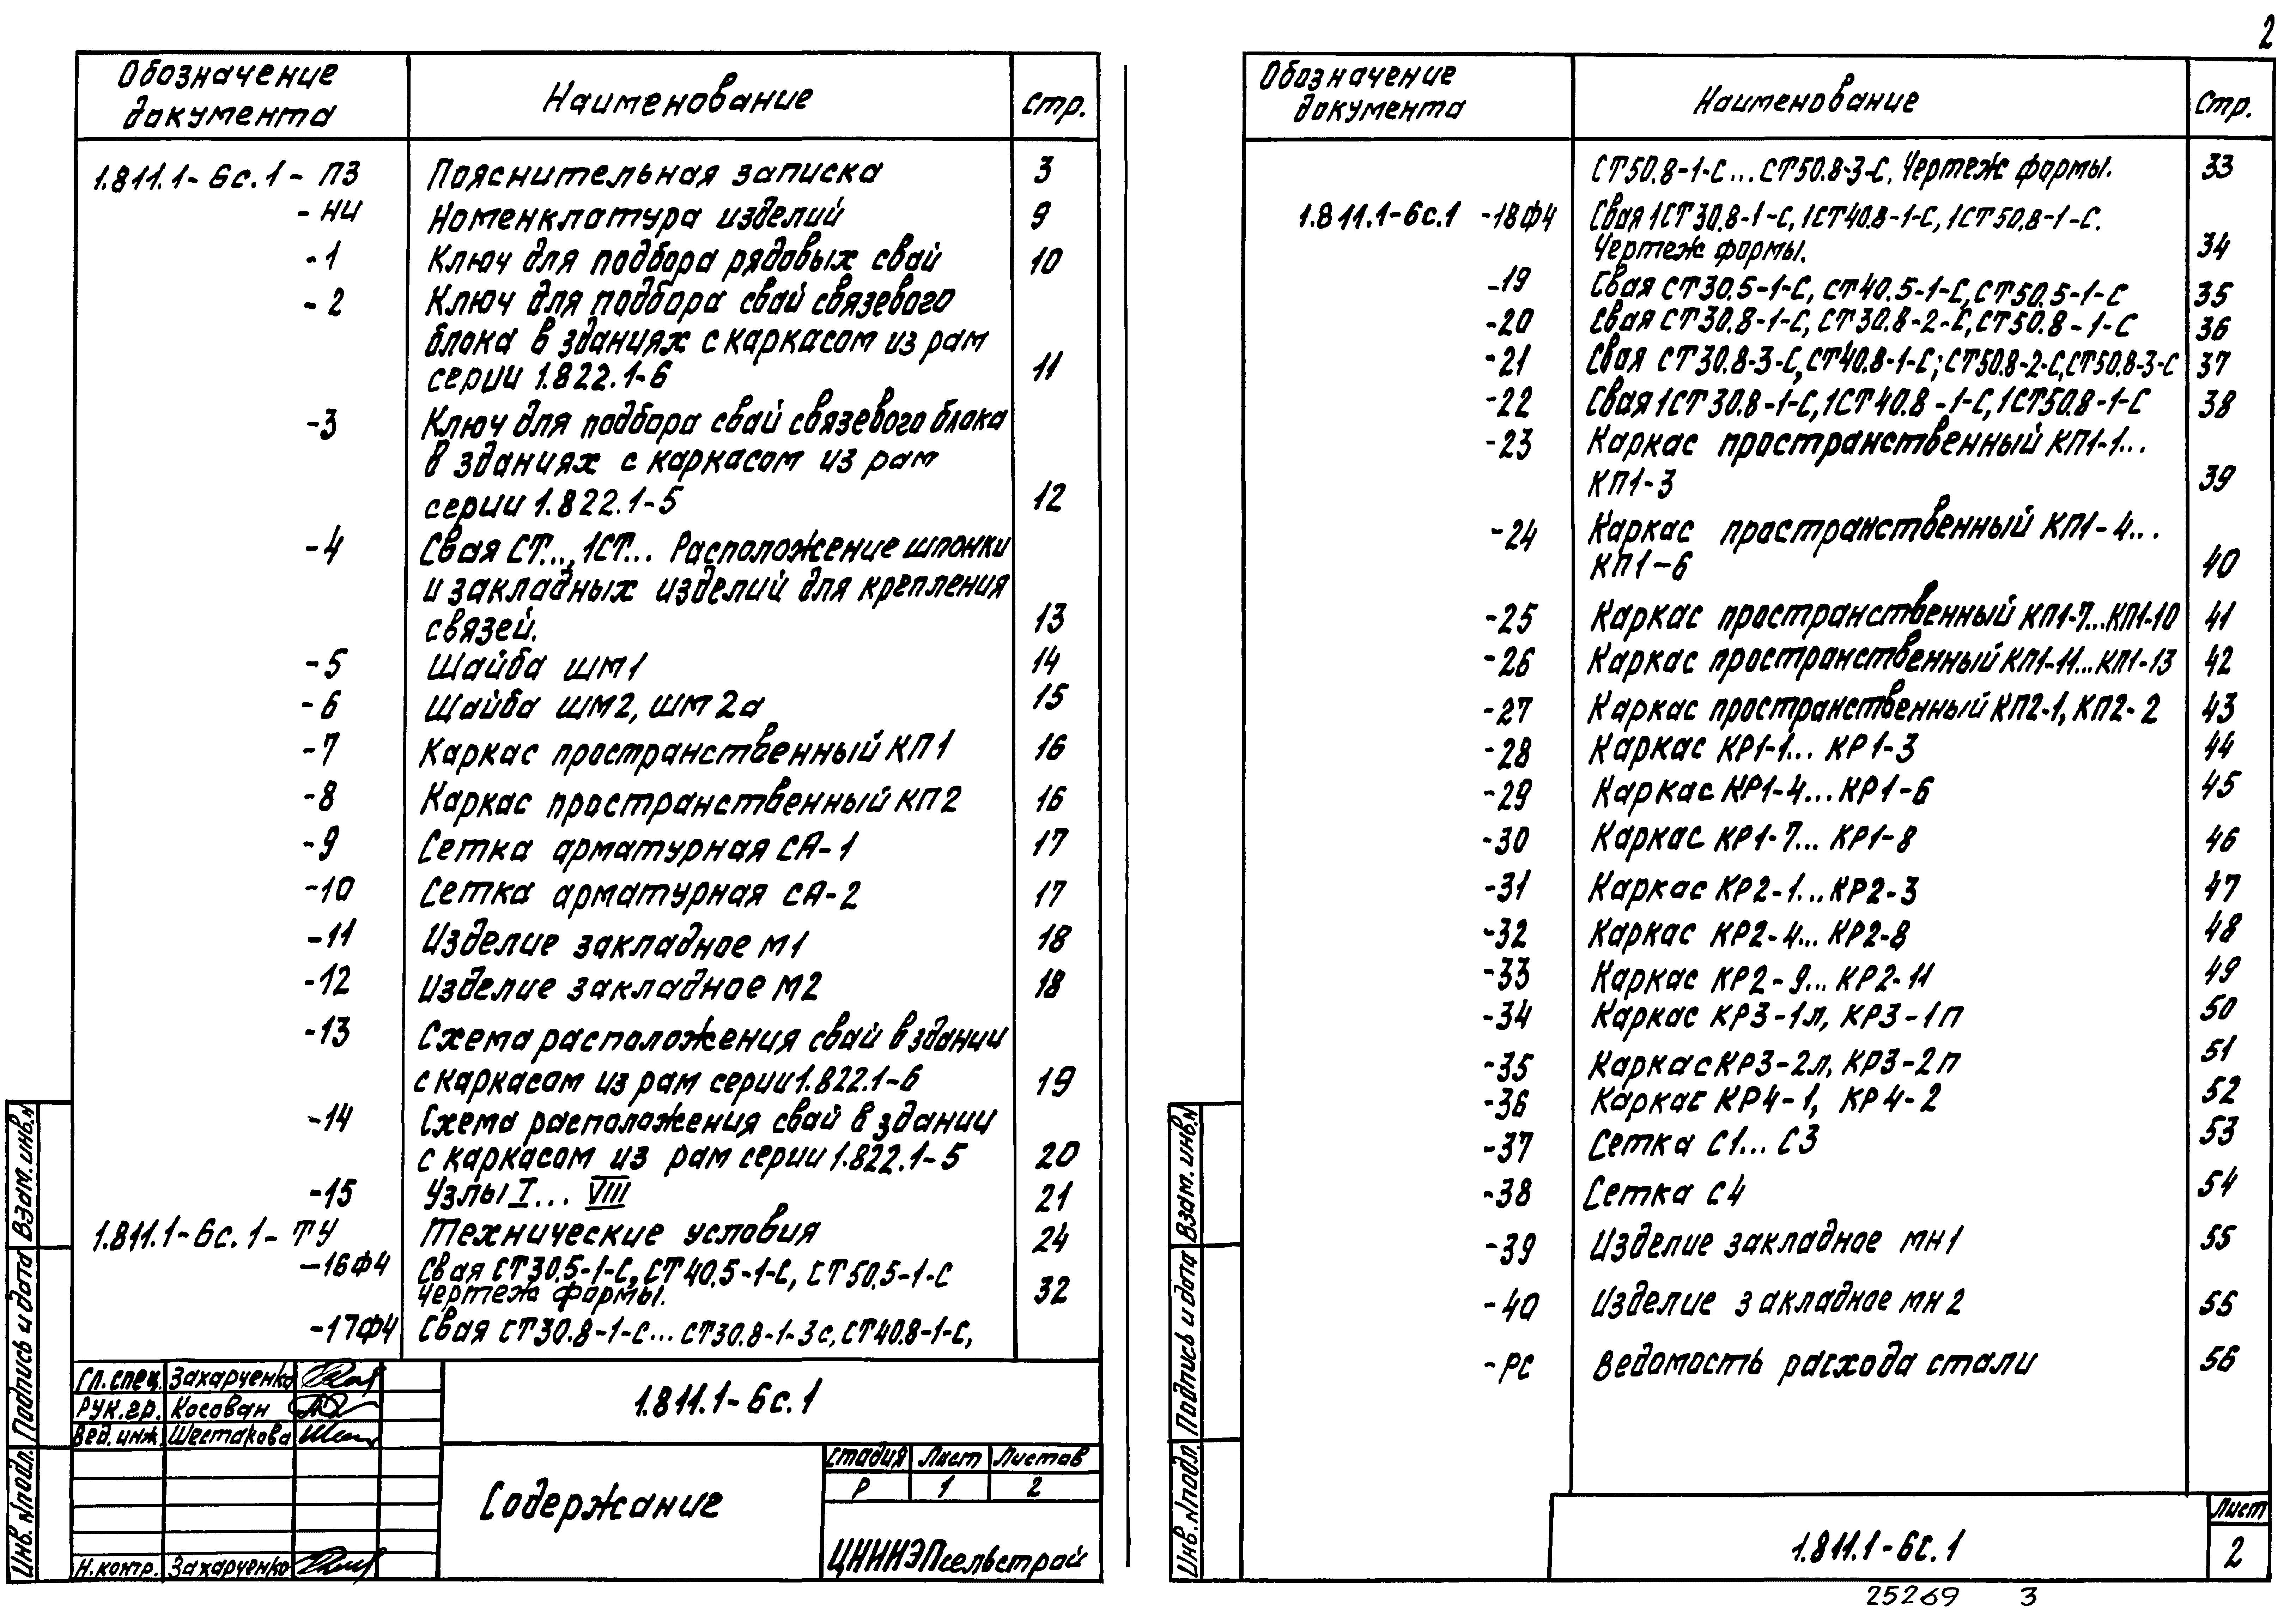 2
Обозначение документа Наименование стр.
1.811.1-6с.1-ПЗ Пояснительная записка 3
-НИ Номенклатура изделий 9
-1 Ключ для подбора рядовых свай 10
-2 Ключ для подбора свай связевого
блока в зданиях с каркасом из рам
серии 1.822.1-6 11
-3 Ключ для подбора свай связевого блока
в зданиях с каркасом из рам
серии 1.822.1-5 12
-4 Свая СТ..., 1СТ... Расположение шпонки
и закладных изделий для крепления
связей. 13
-5 Шайба шм1 14
-6 Шайба шм2, шм2а 15
-7 Каркас пространственный КП1 16
-8 Каркас пространственный КП2 16
-9 Сетка арматурная СА-1 17
-10 Сетка арматурная СА-2 17
-11 Изделие закладное М1 18
-12 Изделие закладное М2 18
-13 Схема расположения свай в здании
с каркасом из рам серии 1.822.1-6 19
-14 Схема расположения свай в здании
с каркасом из рам серии 1.822.1-5 20
-15 Узлы I... VIII 21
1.811.1-6с.1-ТУ Технические условия 24
-16ф4 Свая СТ30.5-1-С, СТ40.5-1-С, СТ50.5-1-С
Чертеж формы. 32
-17ф4 Свая СТ30.8-1-С...СТ30.8-1-3с, СТ40.8-1-С,
Гл. спец. Захарченко
Рук. гр. Косован
Вед. инж. Шестакова
Н. контр. Захарченко
1.811.1-6с.1
Содержание
Стадия Лист Листов
Р 1 2
ЦНИИЭПсельстрой
Взам. инв.н
Подпись и дата
Инв. N подл.
Обозначение документа Наименование Стр.
СТ50.8-1-С...СТ50.8-3-С. Чертеж формы. 33
1.811.1-6с.1 -18ф4 Свая 1СТ30.8-1-С, 1СТ40.8-1-С, 1СТ50.8-1-С.
Чертеж формы. 34
-19 Свая СТ30.5-1-С, СТ40.5-1-С, СТ50.5-1-С 35
-20 Свая СТ30.8-1-С, СТ30.8-2-С, СТ50.8-1-С 36
-21 Свая СТ30.8-3-С, СТ40.8-1-С; СТ50.8-2-С, СТ50.8-3-С 37
-22 Свая 1СТ30.8-1-С, 1СТ40.8-1-С, 1СТ50.8-1-С 38
-23 Каркас пространственный КП1-1...
КП1-3 39
-24 Каркас пространственный КП1-4...
КП1-6 40
-25 Каркас пространственный КП1-7...КП1-10 41
-26 Каркас пространственный КП1-11...КП1-13 42
-27 Каркас пространственный КП2-1, КП2-2 43
-28 Каркас КР1-1... КР1-3 44
-29 Каркас КР1-4...КР1-6 45
-30 Каркас КР1-7... КР1-8 46
-31 Каркас КР2-1...КР2-3 47
-32 Каркас КР2-4... КР2-8 48
-33 Каркас КР2-9... КР2-11 49
-34 Каркас КР3-1л, КР3-1п 50
-35 Каркас КР3-2л, КР3-2п 51
-36 Каркас КР4-1, КР4-2 52
-37 Сетка С1... С3 53
-38 Сетка С4 54
-39 Изделие закладное мн1 55
-40 Изделие закладное мн2 55
-РС Ведомость расхода стали 56
Взам. инв.N
Подпись и дата
Инв. N подл.
1.811.1-6с.1
Лист
2
25269 3